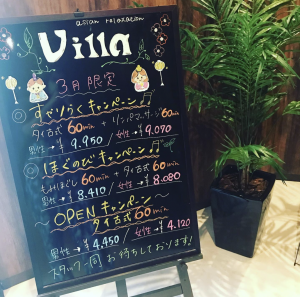 asian relaxation
Villa
3月限定
すぺりらくキャンペーン
タイ古式60min + リンパマッサージ60min
男性→¥9.950 / 女性→¥9.070
ほぐのびキャンペーン
もみほぐし60min + タイ古式60min
男性→¥8.410 / 女性→¥8.080
OPENキャンペーン
タイ古式60min
男性→¥4,450 / 女性→¥4.120
スタッフ一同 お待ちしております!